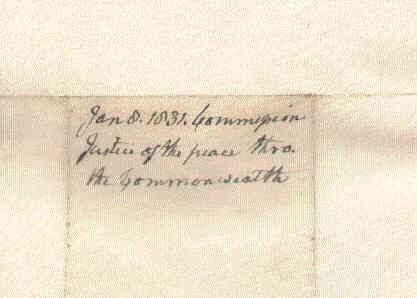 Jan 8. 1831. Commission
Justice of the peace thro.
the Commonwealth